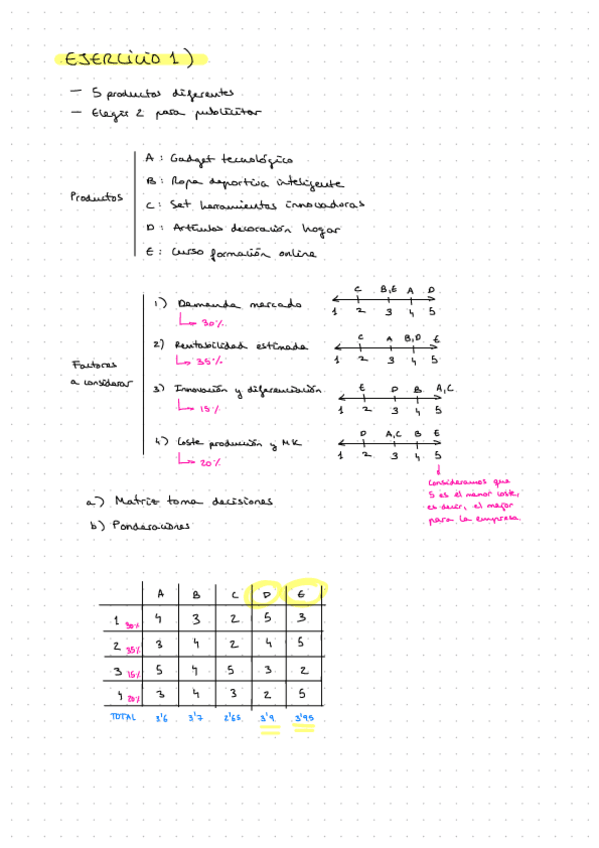 EJERCICIO 1)
— 5 productos diferentes
— Elegir 2 para publicitar
Productos
A: Gadget tecnológico
B: Ropa deportiva inteligente
C: Set herramientas innovadoras
D: Artículos decoración hogar
E: Curso formación online
Factores a considerar
1) Demanda mercado
↳ 30%
C B,E A D
1 2 3 4 5
2) Rentabilidad estimada
↳ 35%
C A B,D E
1 2 3 4 5
3) Innovación y diferenciación
↳ 15%
E D B A,C
1 2 3 4 5
4) Coste producción y MK
↳ 20%
D A,C B E
1 2 3 4 5
Consideramos que
5 es el menor coste,
es decir, el mejor
para la empresa
a) Matriz toma decisiones
b) Ponderaciones
A B C D E
1 30% 4 3 2 5 3
2 35% 3 4 2 4 5
3 15% 5 4 5 3 2
4 20% 3 4 3 2 5
TOTAL 3'6 3'7 2'65 3'9 3'95